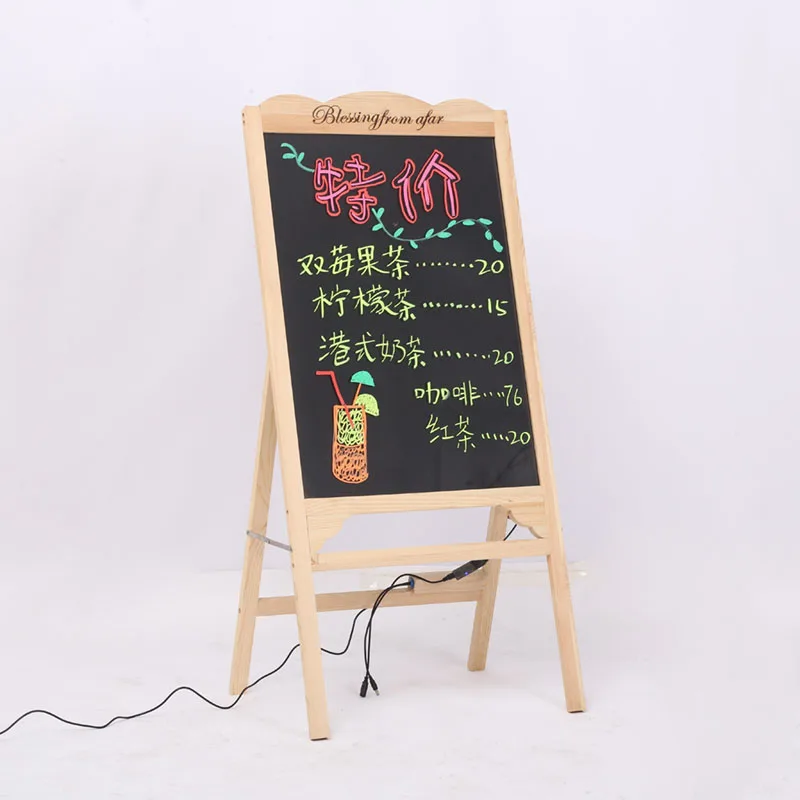 Blessingfrom afar
特价
双莓果茶········20
柠檬茶·········15
港式奶茶·······20
咖啡····76
红茶·····20